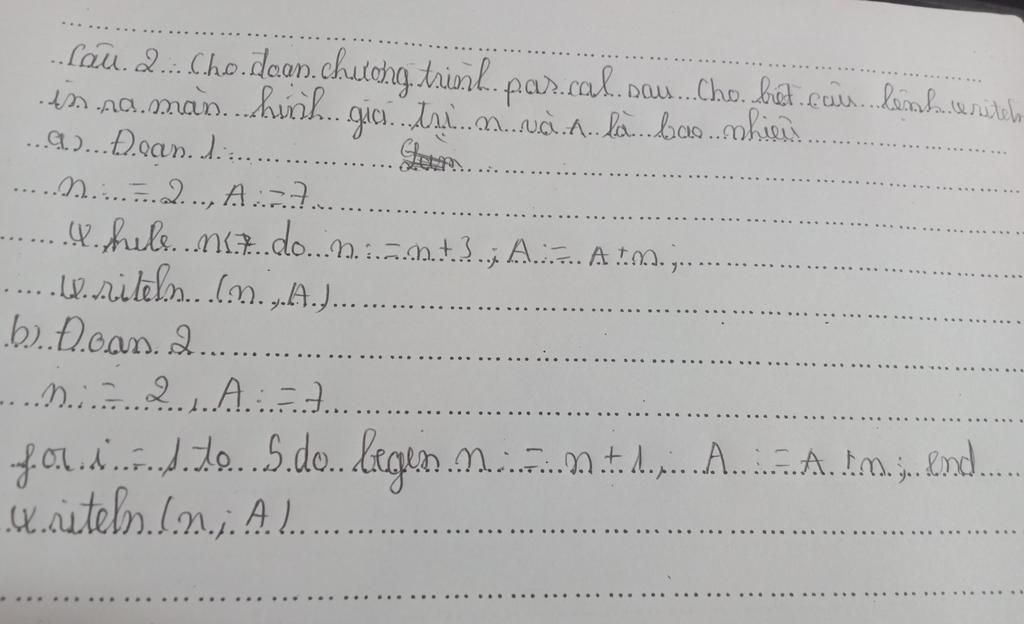 Câu 2: Cho đoạn chương trình pascal sau cho biết câu lệnh writeln
in ra màn hình giá trị n và A là bao nhiêu
a) Đoạn 1:
n := 2, A := 7
While n<7 do n := n+3; A := A+n;
writeln (n, A)
b) Đoạn 2
n := 2, A := 7
for i := 1 to 5 do begen n := n+1; A := A+n; end
writeln (n; A)